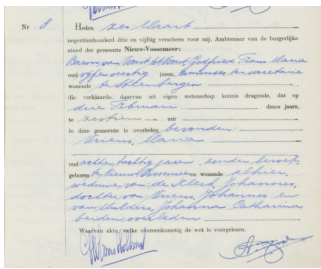 Nr 8 Heden zes Maart
negentienhonderd drie en vijftig verscheen voor mij, Ambtenaar van de burgerlijke
stand der gemeente Nieuw-Vossemeer:
van Godfried Frans Maria
oud vijfenveertig jaren, secretarie
wonende te Steenbergen
die verklaarde, daarvan uit eigen wetenschap kennis dragende, dat op
drie Februari dezes jaars,
te zestien uur
in deze gemeente is overleden bevonden
Vriens, Maria
oud achtentachtig jaren, zonder beroep
geboren te Nieuw-Vossemeer en wonende alhier,
weduwe van de Klerk, Johannes,
dochter van Vriens, Johannes en
van Mulders, Johanna Catharina
beiden overleden
Waarvan akte, welke overeenkomstig de wet is voorgelezen.